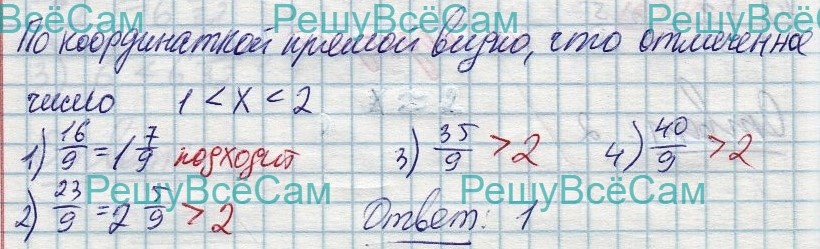 РешуВсёСам РешуВсёСам
По координаткой прямой видно, что отмеченное
число 1 < x < 2
1) 16/9 = 1 7/9 подходит 3) 35/9 > 2 4) 40/9 > 2
РешуВсёСам РешуВсёСам
2) 23/9 = 2 5/9 > 2 Ответ: 1